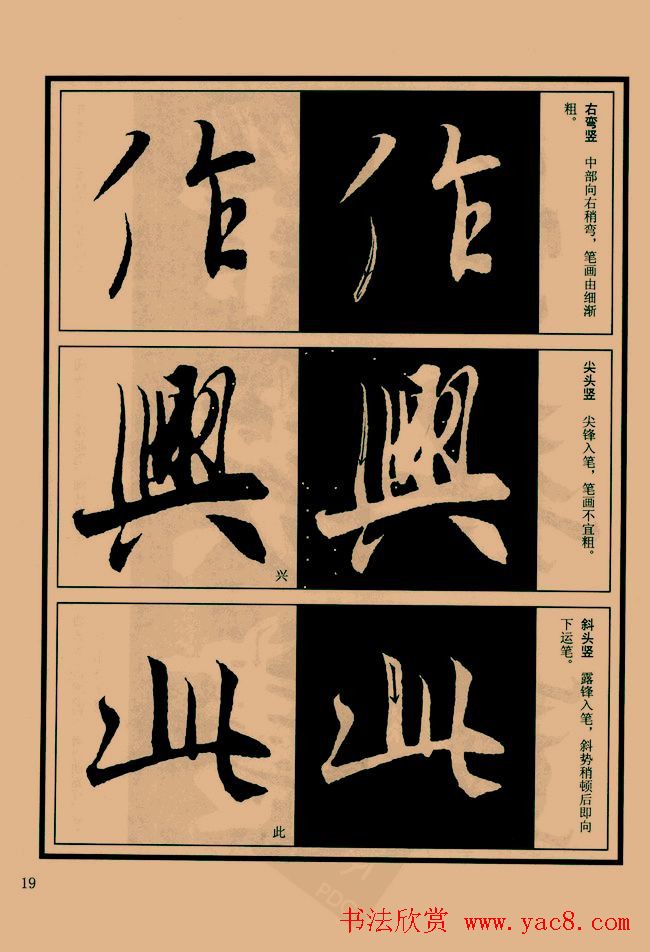 右弯竖　中部向右稍弯，笔画由细渐
粗。
作
作
尖头竖　尖锋入笔，笔画不宜粗。
興
興
兴
斜头竖　露锋入笔，斜势稍顿后即向
下运笔。
此
此
此
19
书法欣赏 www.yac8.com